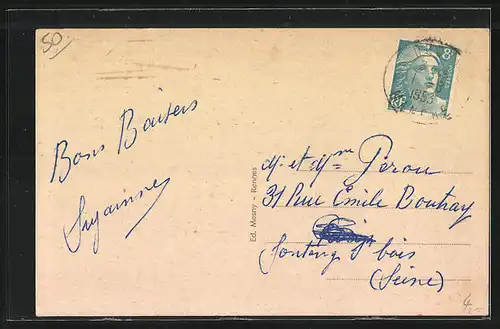 50
8F
1953
Bons Baisers
Suzanne
Ed. Mesny - Rennes
Mr et Mme Perou
31 Rue Emile Boutray
Fontenay S bois
(Seine)